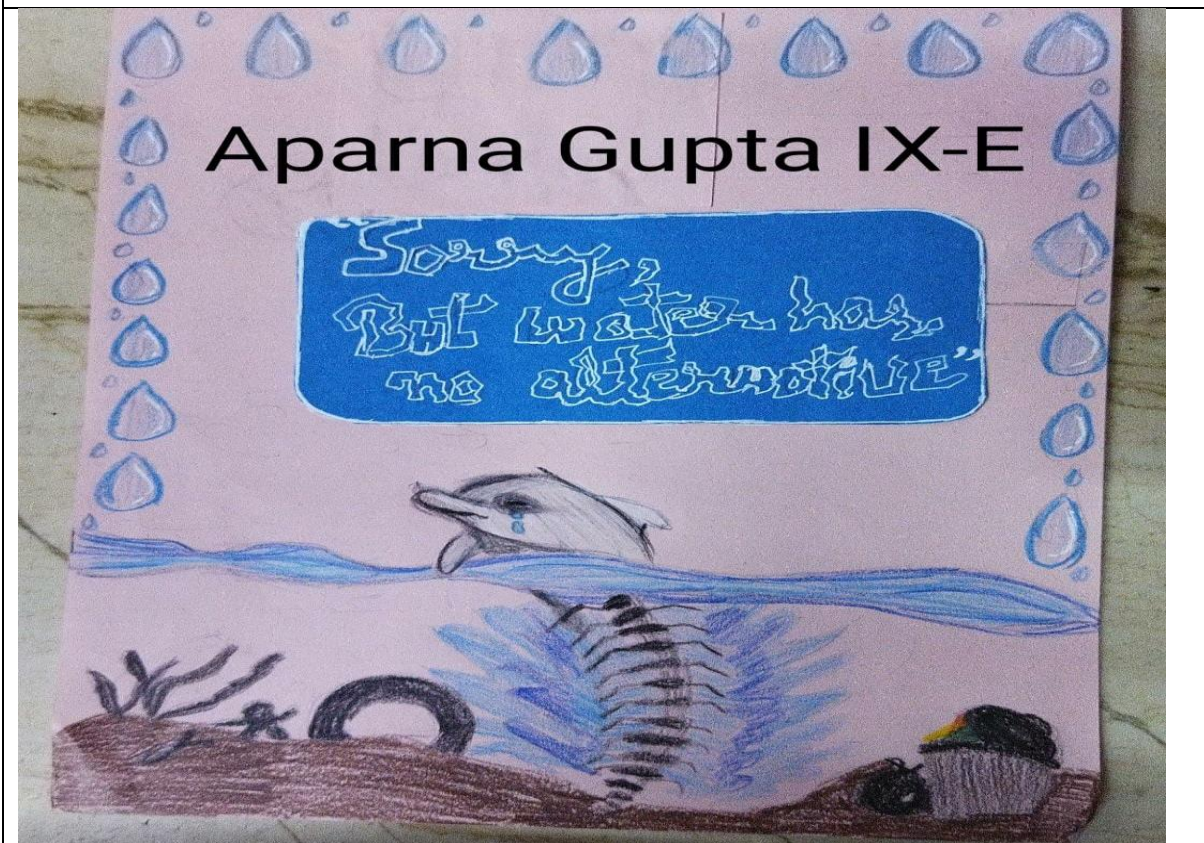 Aparna Gupta IX-E
"Sorry,
But water has
no alternative"